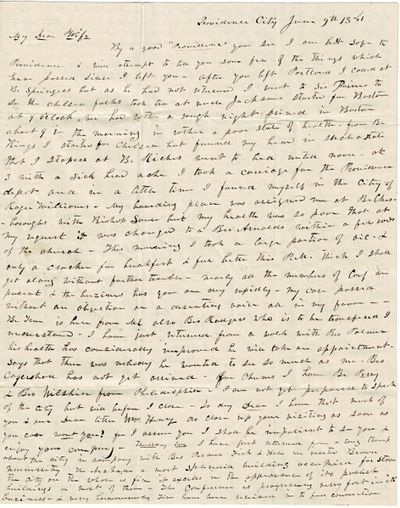 Providence City June 9th 1841
My Dear Wife
By a good "Providence" you see I am safe to
Providence & will attempt to tell you some few of the things which
have passed since I left you - After you left Portland I called at
Br Springers but as he had not returned I went to
see the Chelsea folks took tea at uncle Jacksons started for Boston
at 7 oclock, we had rather a rough night arrived in Boston
about 8 in the morning in rather a poor state of health - from
things I started for Chelsea but found my head in such a state
that I stoped at Br Riches went to bed until noon - at
3 with a sick head ache I took a carriage for the Providence
depot and in a little time I found myself in the City of
Roger Williams - My boarding place was assigned me at Br
with but my health was so poor that at
my request it was changed to a Bro Arnolds within a few rods
of the church - This morning I took a large portion of oil &
only a cracker for breakfast & feel better this P.M. think I shall
get along without further trouble - nearly all the members of Conf are
present & the business has gone on very rapidly - my case passed
without an objection or a dissenting voice all in my favor -
is here from also Bro Rodgers who is to be transfered I
understand - I have just returned from a walk with Bro Palmer
his health has considerably improved he will take an appointment.
Says that there was nobody he wanted to see so much as me - Bro
Cogeshall has not got arrived - for Chums I have Bro Perry
& Bro from Philadelphia - I am not yet prepared to speak
of the city but will before I close - To day Dear I have thot much of
you & our Dear little Wm Close up your visiting as soon as
you can won't you? for I assure you I shall be impatient to see you &
enjoy your company - Thursday I have just returned from a long tramp
about the city in company with Bro & in Brown
University The a most Splendid building occupied for stores
the city on the whole is fine it excels in the appearance of its publick
buildings a of them - The Conference is progressing very fast in its
business & very harmoniously have been received in to full connection